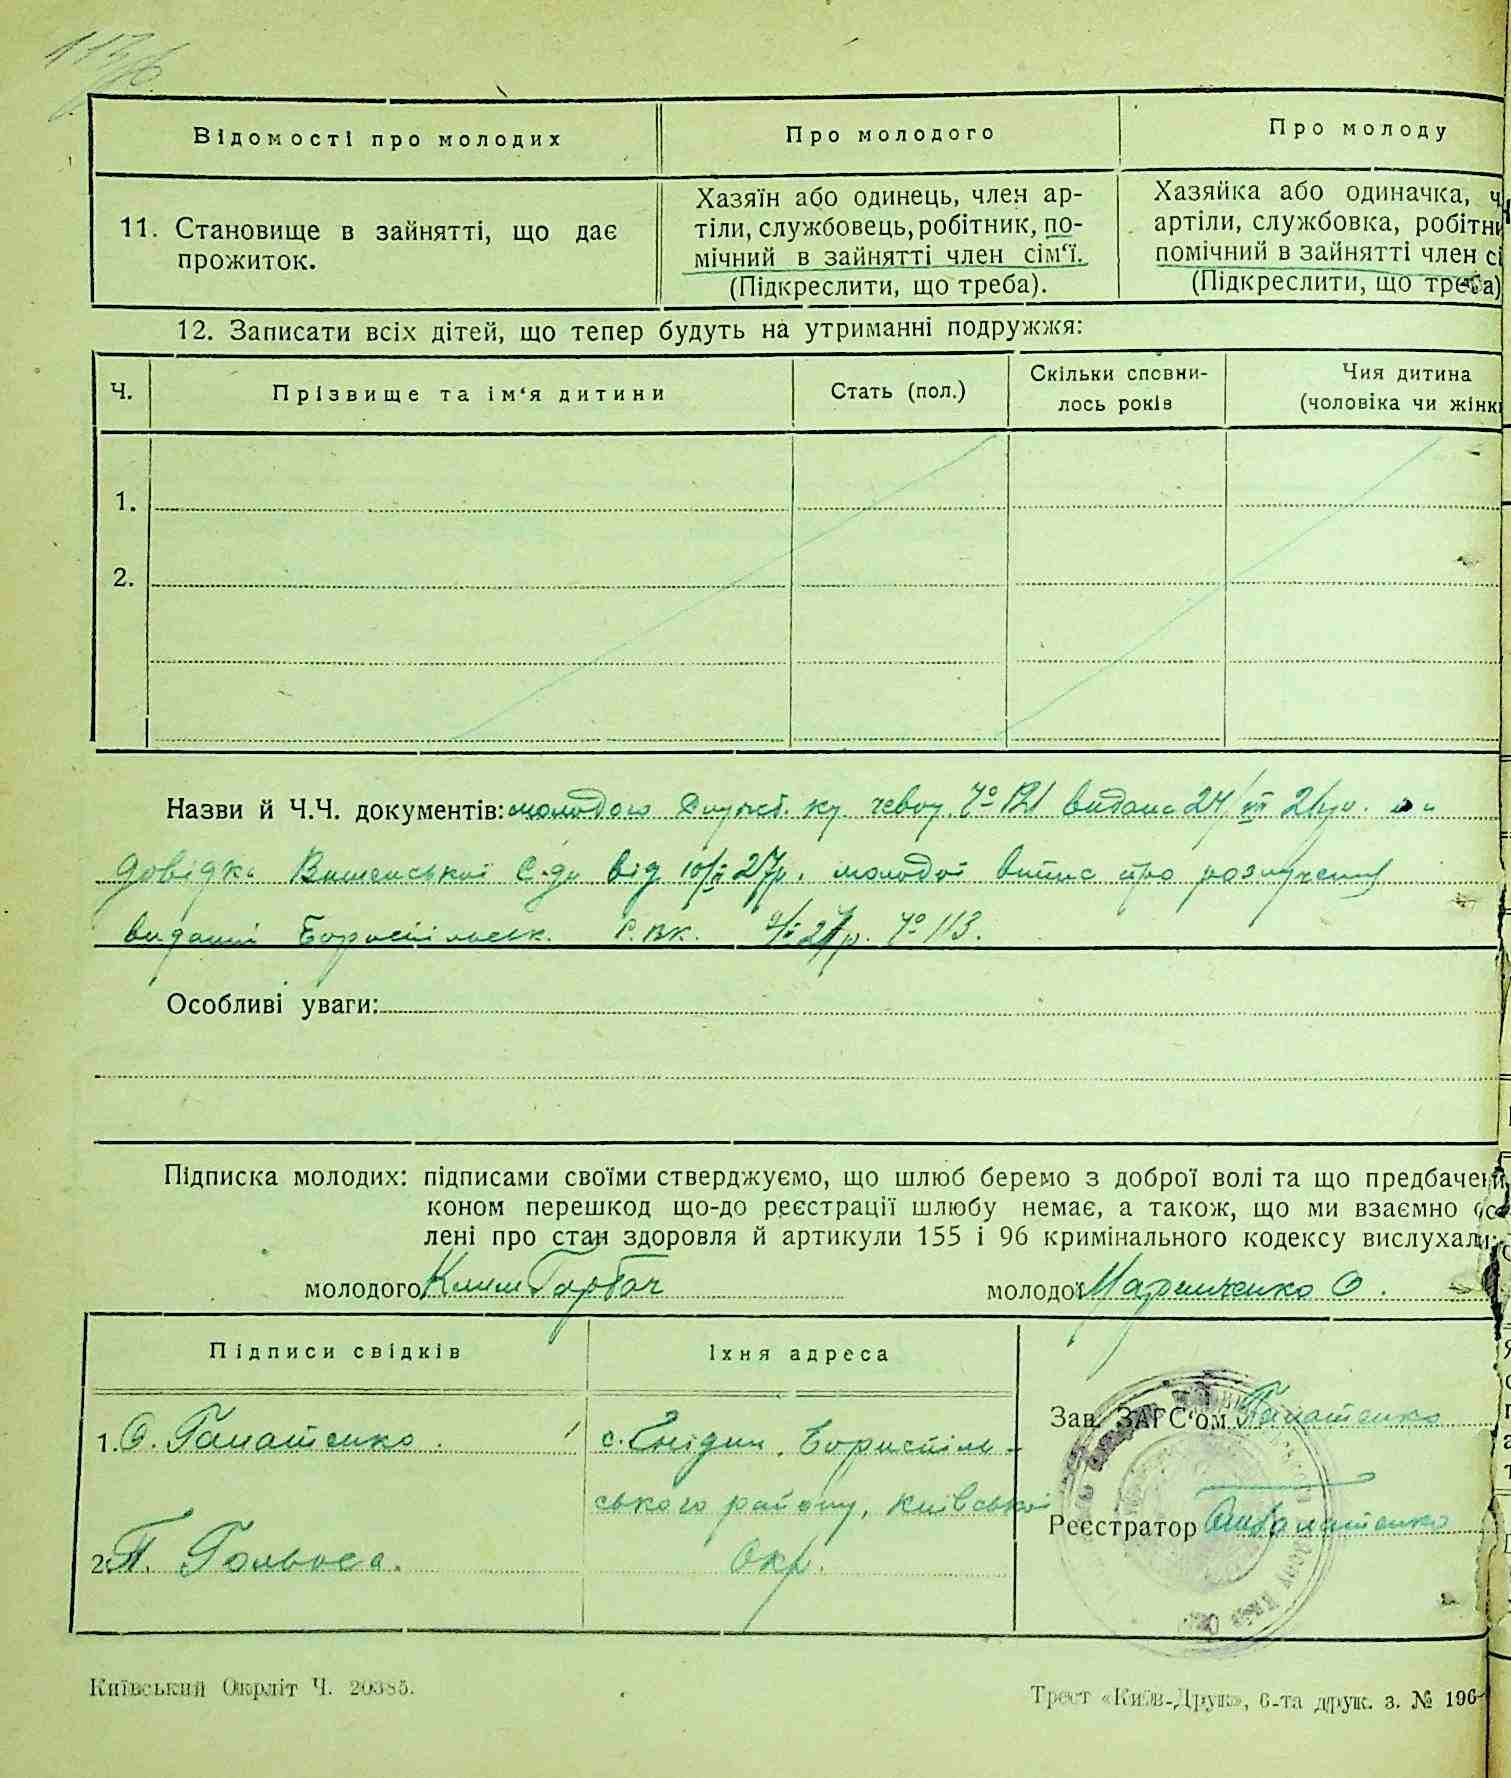 Відомості про молодих
Про молодого
Про молоду
11. Становище в зайнятті, що дає
прожиток.
Хазяїн або одинець, член ар-
тіли, службовець, робітник, по-
мічний в зайнятті член сім‘ї.
(Підкреслити, що треба).
Хазяйка або одиначка, ч
артіли, службовка, робітни
помічний в зайнятті член сі
(Підкреслити, що треба)
12. Записати всіх дітей, що тепер будуть на утриманні подружжя:
Ч.
Прізвище та ім‘я дитини
Стать (пол.)
Скільки сповни-
лось років
Чия дитина
(чоловіка чи жінк
1.
2.
Назви й Ч.Ч. документів: молодого видана
Довідка від 10/II 27р. молодої витяг про розлучення
видані Бориспільськ. Р.В.К. 9/II 27р. № 113.
Особливі уваги:
Підписка молодих: підписами своїми стверджуємо, що шлюб беремо з доброї волі та що предбачені
коном перешкод що-до реєстрації шлюбу немає, а також, що ми взаємно ос
лені про стан здоровля й артикули 155 і 96 кримінального кодексу вислухали.
молодого Клим Горбач
молодої Марченко О.
Підписи свідків
Їхня адреса
1. О. Гапатенко.
с. Гнідин, Бориспіль-
ського району, Київської
2. П. Гольоса.
Окр.
Зав. ЗАГС‘ом Гапатенко
Реєстратор
Київський Окрліт Ч. 20385.
Трест «Київ-Друк», 6-та друк. з. № 196